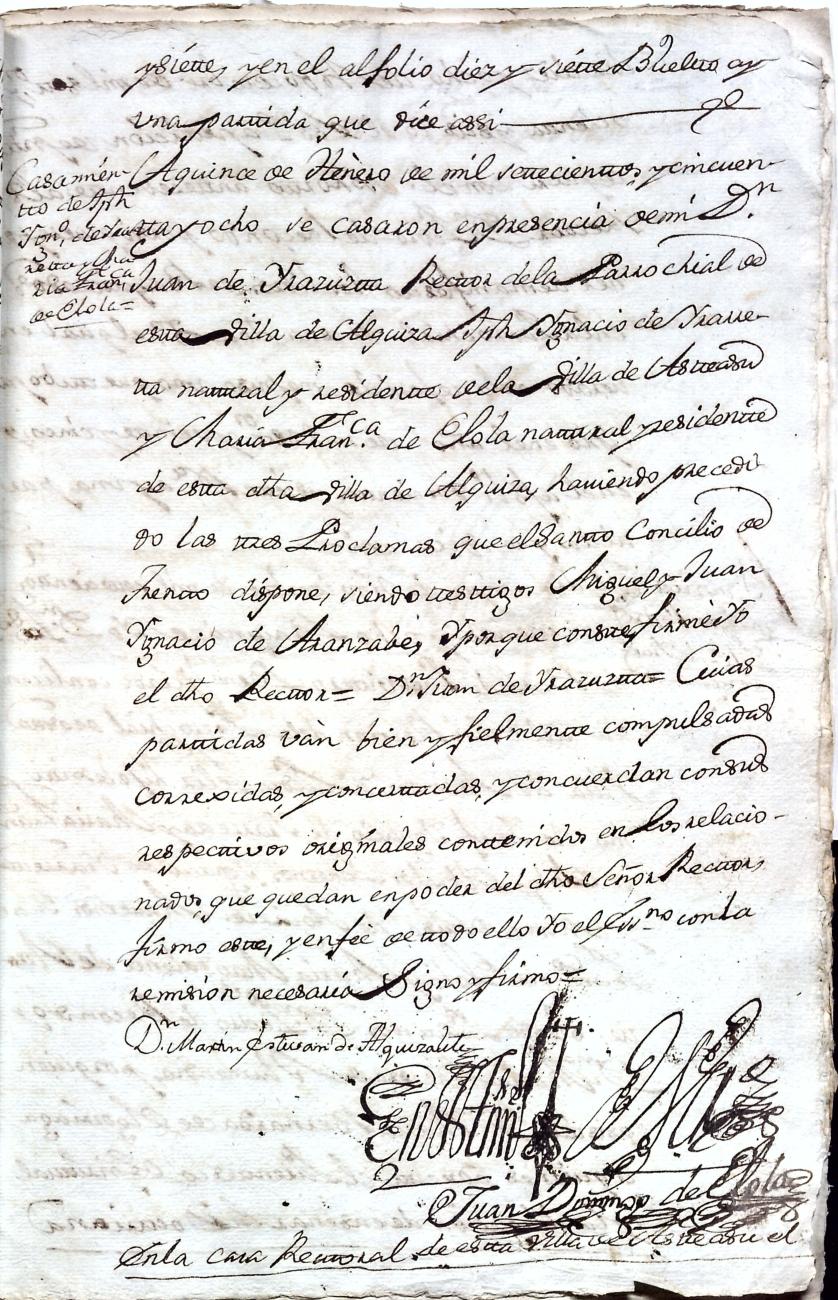 ysiette, yen el al folio diez y siette Buelto ay
vna parttida que dice assi
Casamien-
tto de Jph
Ygnº, de Yrarre
retta y Ma
ria Franca
de Elola=
A quince de Henero de mil settecienttos, y cincuen-
tta y ocho se casaron en presencia de mi Dn
Juan de Yrazuztta Recttor dela Parrochial de
estta Villa de Alquiza Jph Ygnacio de Yrarre-
tta natural y residentte dela Villa de Astteasu
y Maria Franca. de Elola natural y residentte
de estta dha Villa de Alquiza, haviendo precedi
do las ttres Proclamas que el Santto Concilio de
Trentto dispone, siendo ttesttigos Miguel y Juan
Ygnacio de Aranzabe, Y porque constte, firmè Yo
el dho Recttor= Dn Juan de Yrazuztta= Cuias
parttidas vàn bien y fielmentte compulsadas
correxidas, y concerttadas, y concuerdan consus
respecttivos originales conttenidos en los relacio-
nados, que quedan en poder del dho Señor Recttor,
firmo estte, y en feè de ttodo ello Yo el Essno con la
remision necesaria Signo y firmo=
Dn. Martin Estevan de Alquizalete
En testimº de Verdad
Juan Domingo de Elola
En la casa Recttoral de estta Villa de Astteasu el